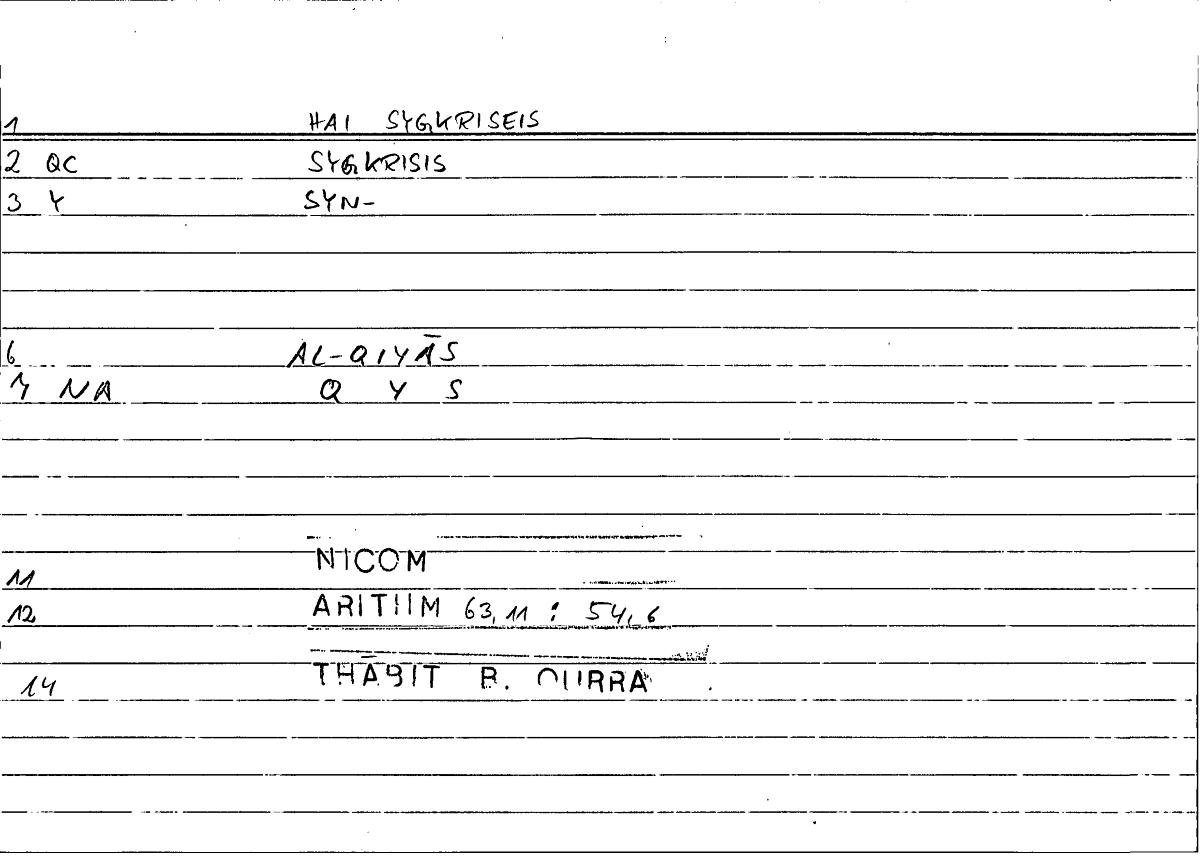 1 HAI SYGKRISEIS
2 QC SYGKRISIS
3 Y SYN-
6 AL-QIYĀS
7 NA Q Y S
11 NICOM
12 ARITHM 63,11 : 54,6
14 THĀBIT B. QURRA